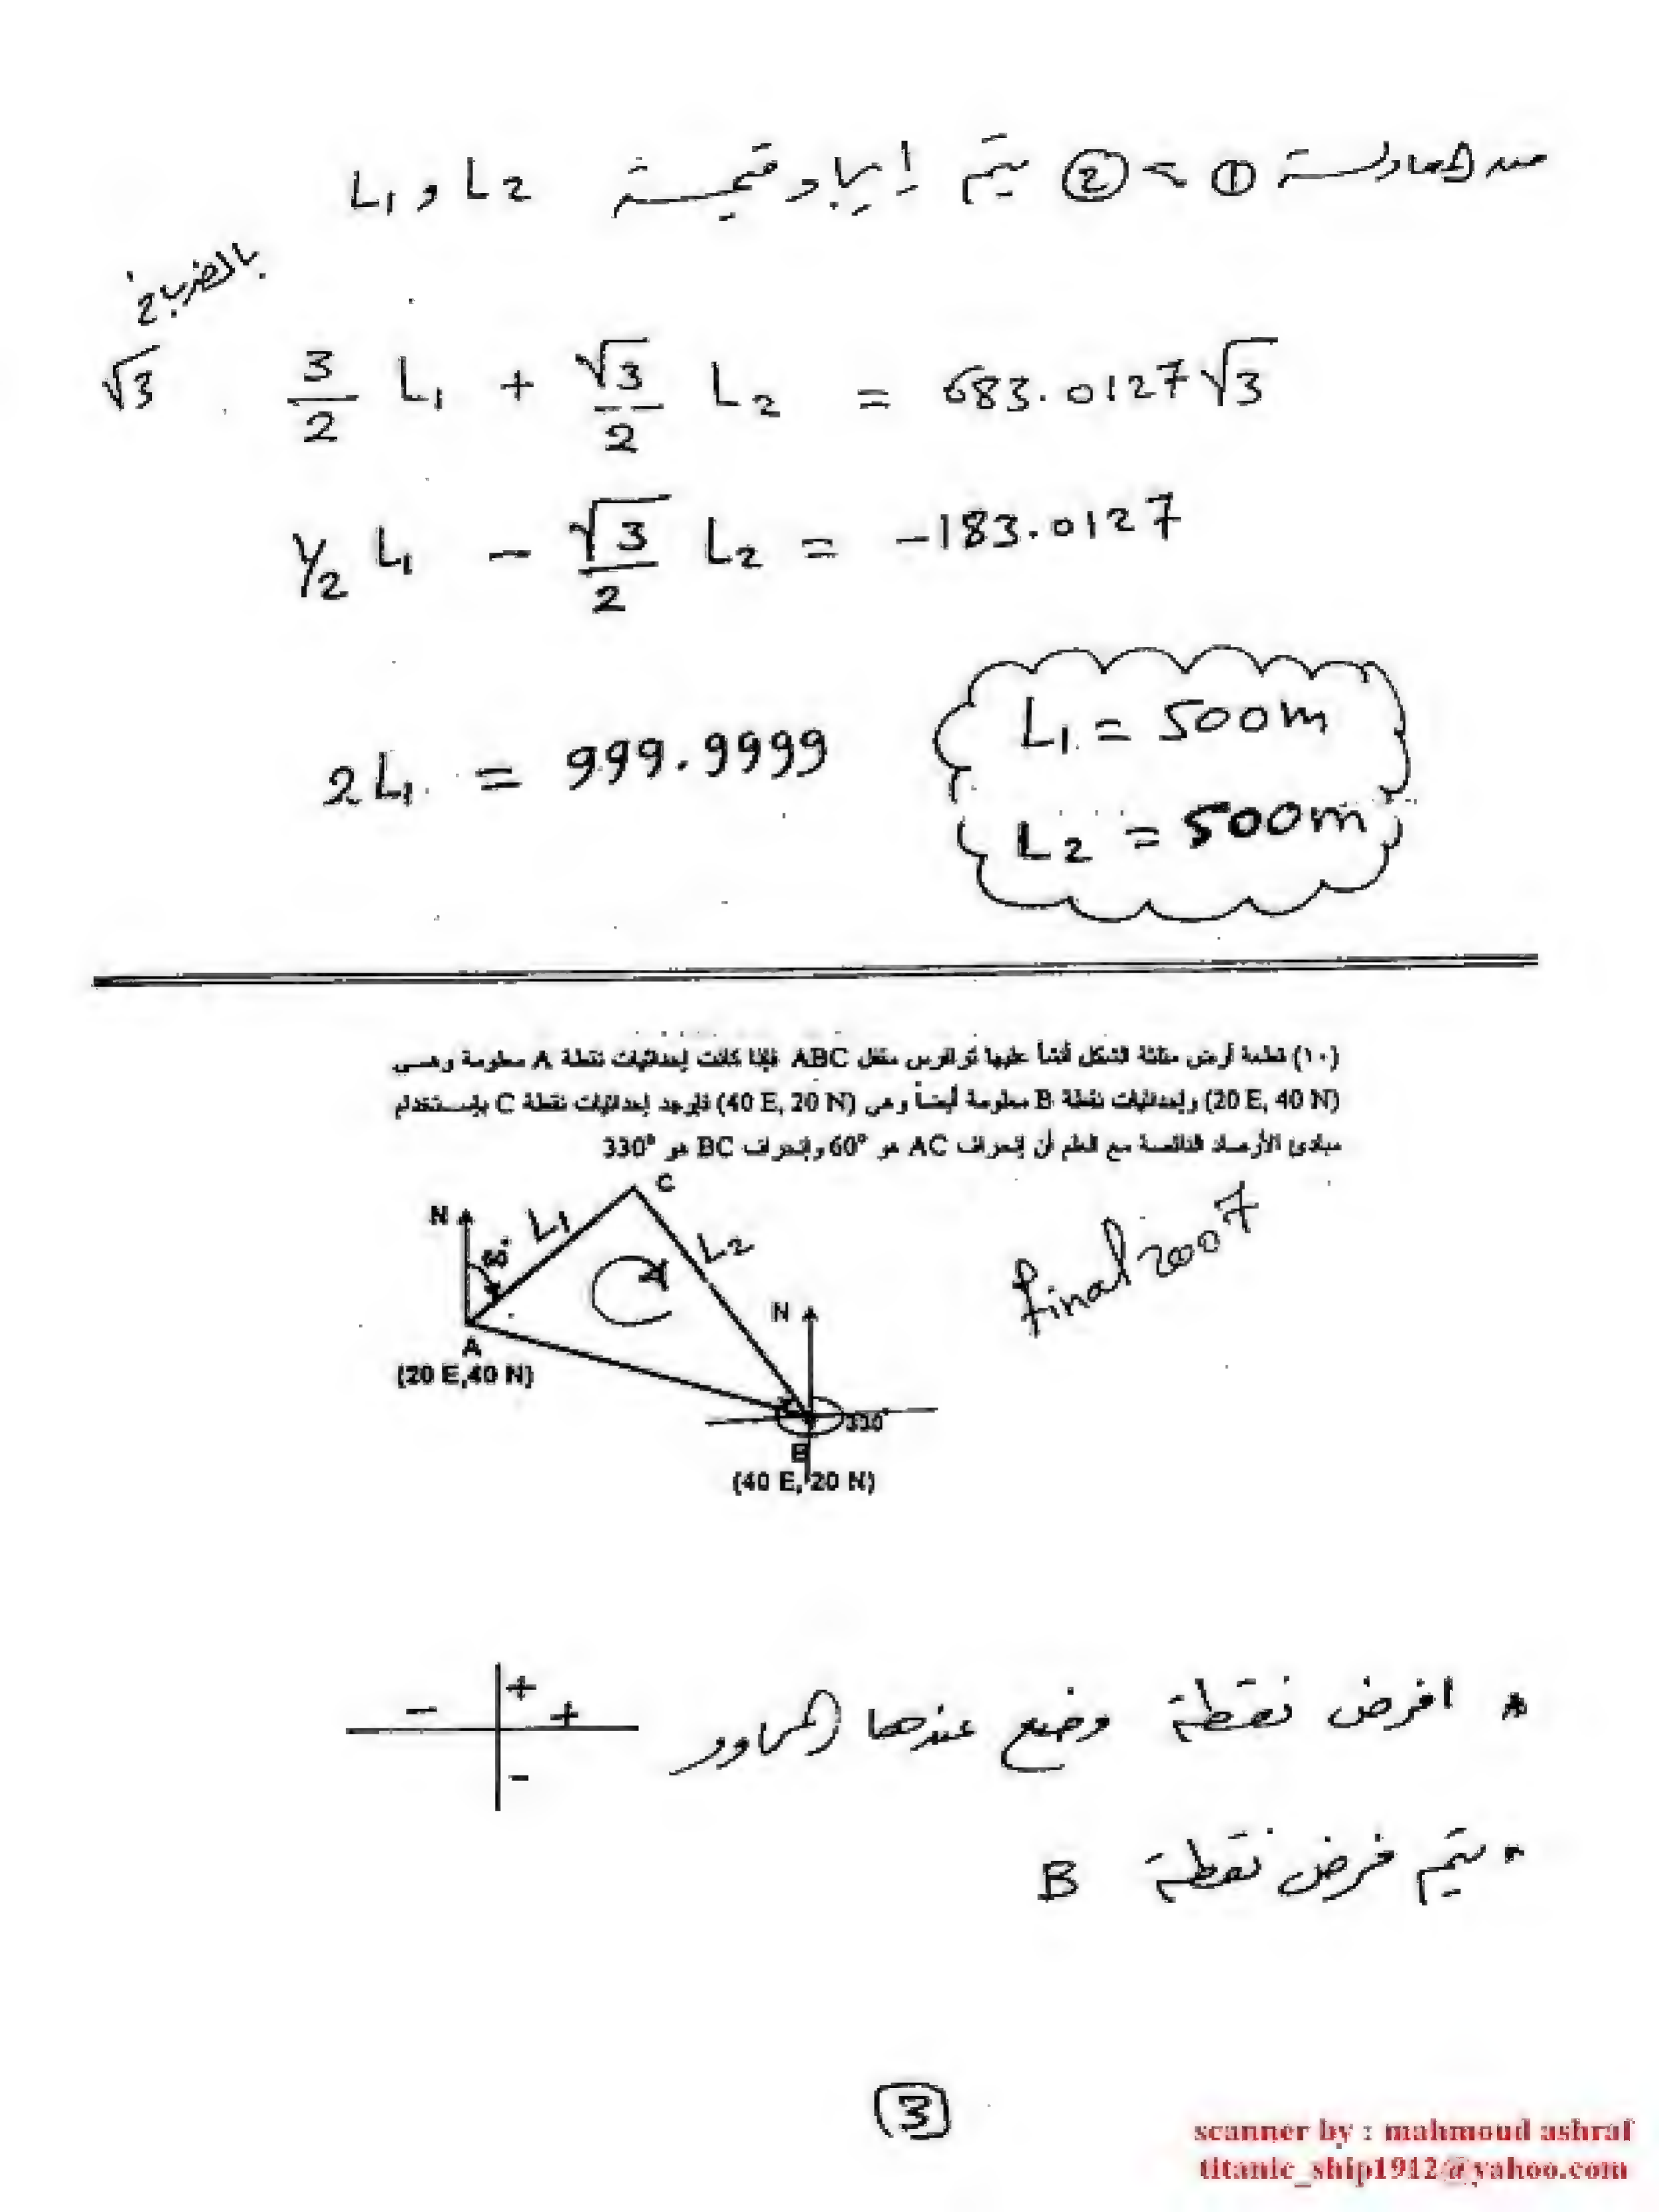 من المعادلة ① ، ② يتم إيجاد قيمة L₁ , L₂
بالضرب في
√3
3/2 L₁ + √3/2 L₂ = 683.0127√3
1/2 L₁ - √3/2 L₂ = -183.0127
2L₁ = 999.9999
L₁ = 500m
L₂ = 500m
(١٠) قطعة أرض مثلثة الشكل أنشأ عليها ترافرس مقفل ABC فإذا كانت إحداثيات نقطة A معلومة وهي
(20 E, 40 N) وإحداثيات نقطة B معلومة أيضاً وهي (40 E, 20 N) فأوجد إحداثيات نقطة C بإستخدام
مبادئ الأرصاد الناقصة مع العلم أن إنحراف AC هو 60° وإنحراف BC هو 330°
C
N
L₁
60°
L₂
N
A
(20 E,40 N)
330
B
(40 E, 20 N)
final 2007
* افرض نقطة وضع عندها المحاور
- + + -
* يتم فرض نقطة B
3
scanner by : mahmoud ashraf
titanic_ship1912@yahoo.com